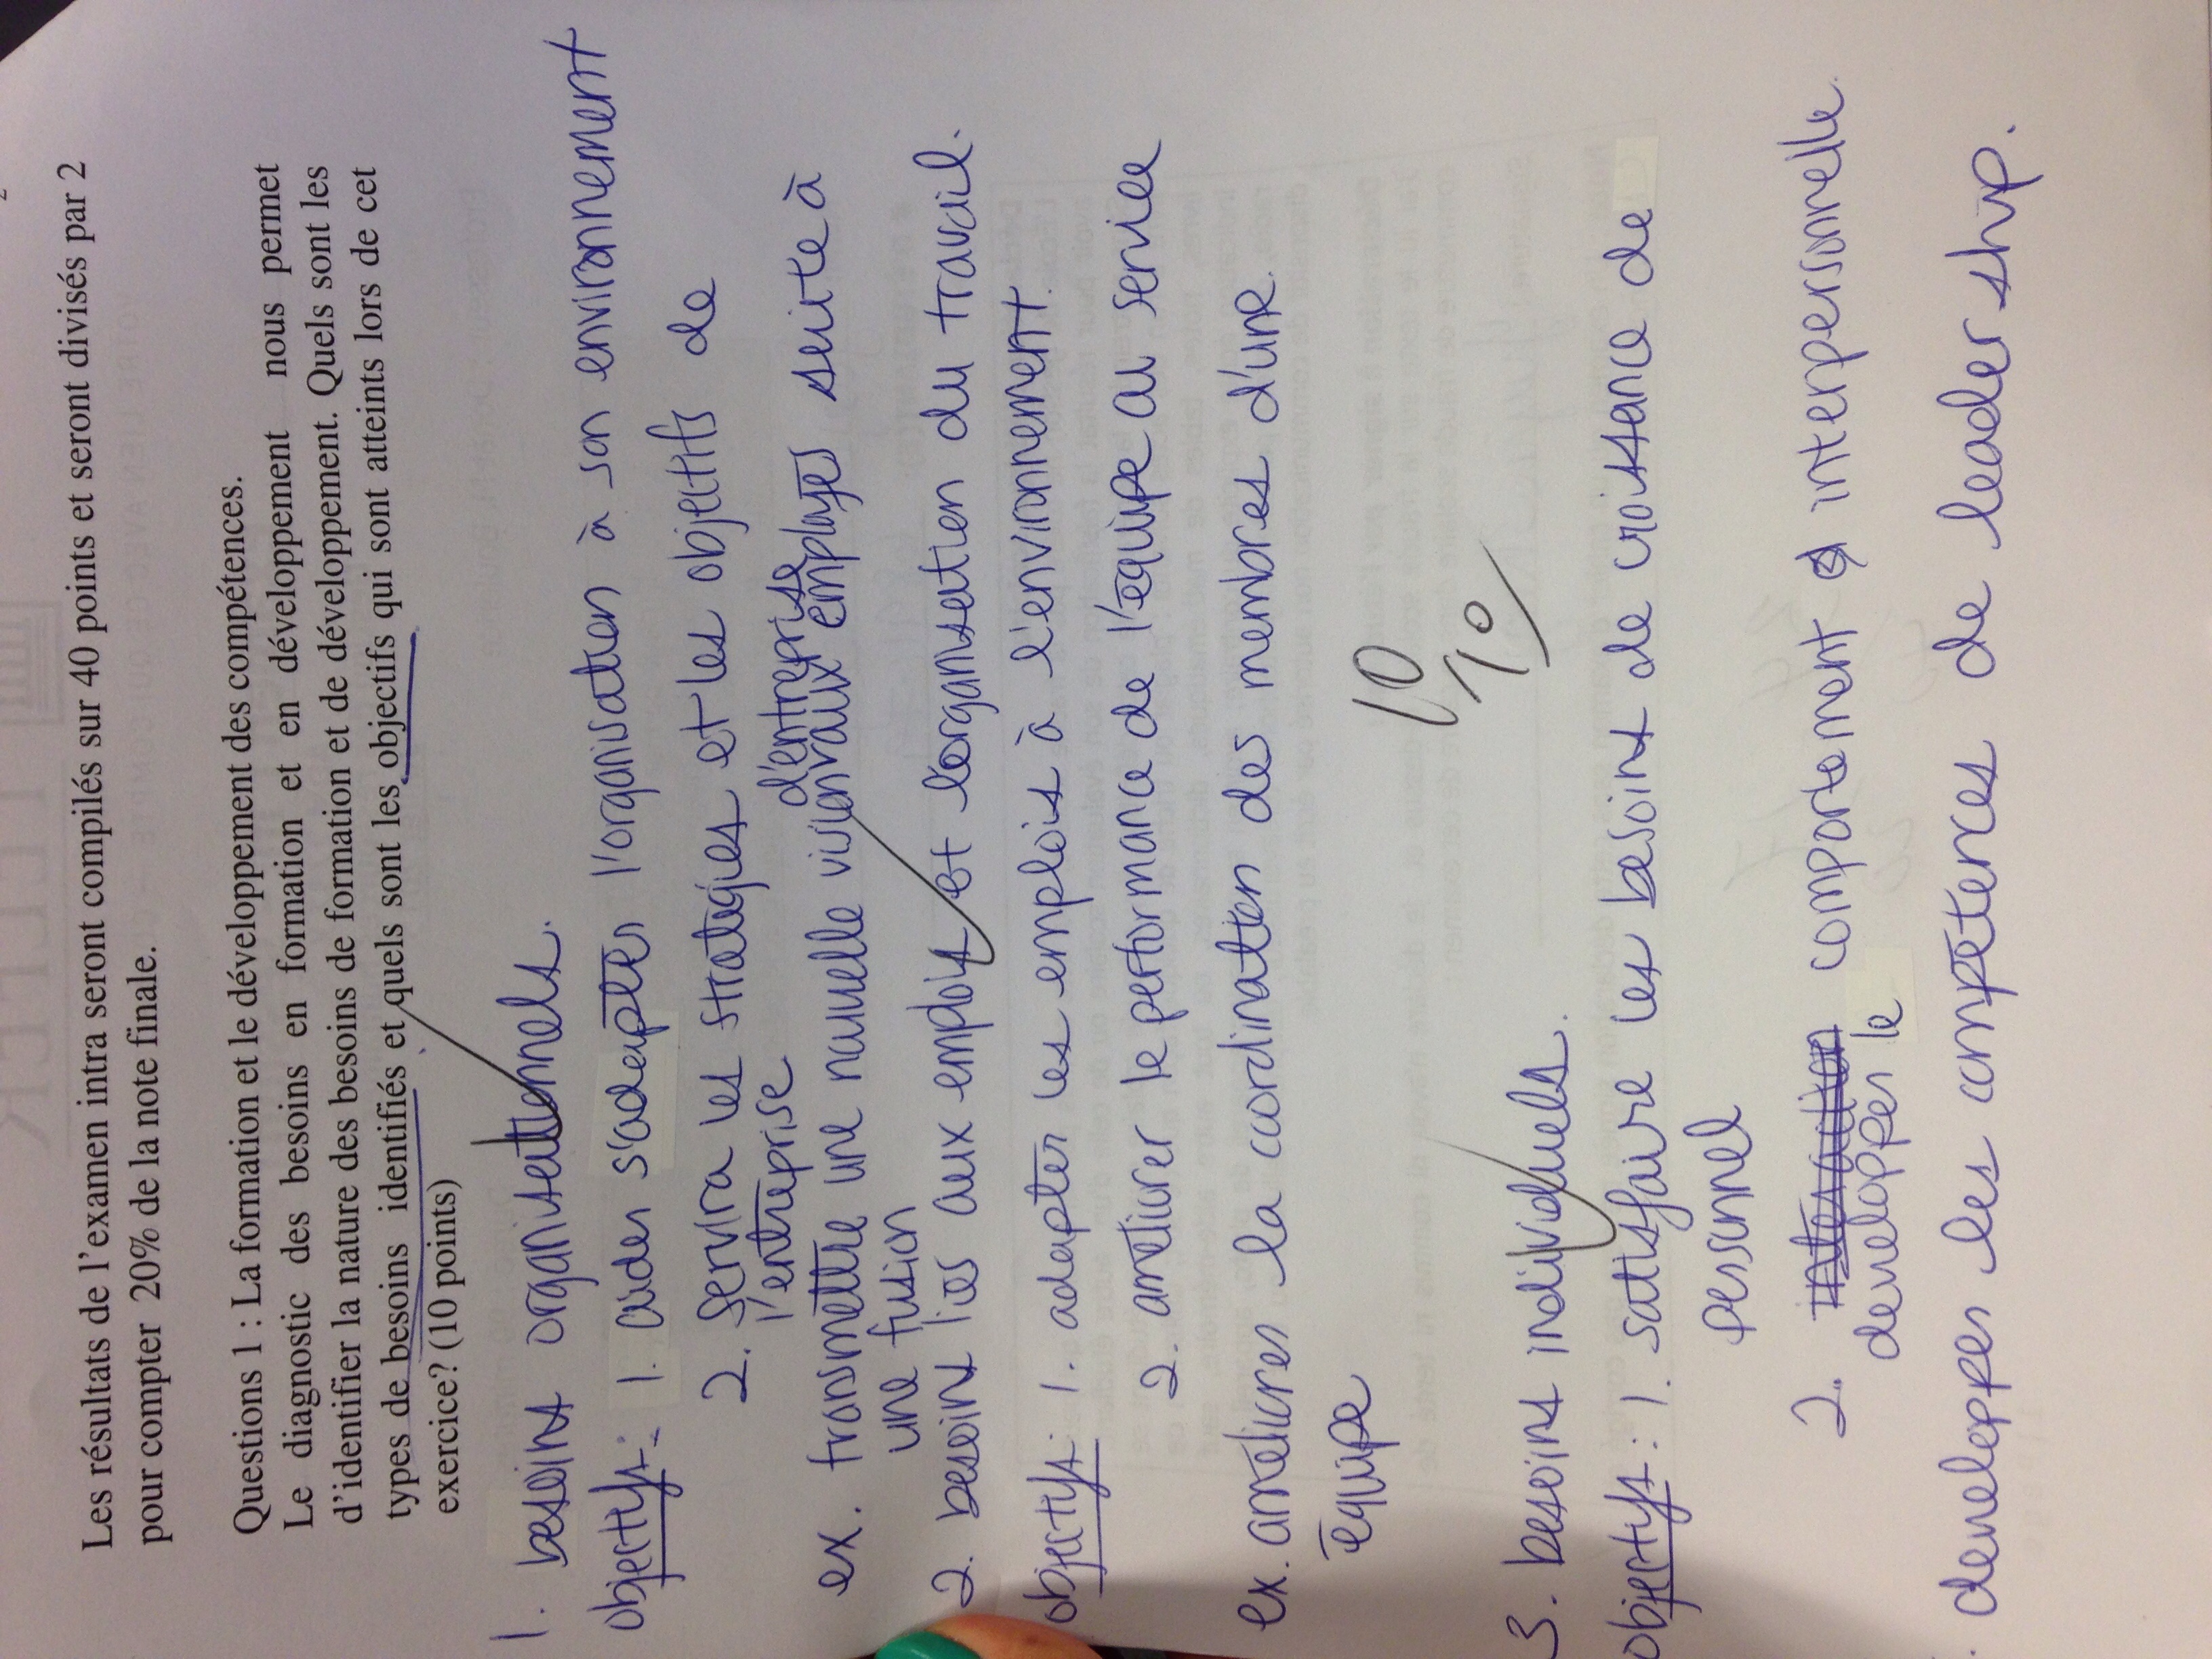 Les résultats de l'examen intra seront compilés sur 40 points et seront divisés par 2
pour compter 20% de la note finale.
Questions 1 : La formation et le développement des compétences.
Le diagnostic des besoins en formation et en développement nous permet
d'identifier la nature des besoins de formation et de développement. Quels sont les
types de besoins identifiés et quels sont les objectifs qui sont atteints lors de cet
exercice? (10 points)
1. besoins organisationnels.
objectifs: 1. aider s'adapter l'organisation à son environnement
2. servira les stratégies et les objectifs de
l'entreprise
d'entreprise
ex. transmettre une nouvelle vision aux employés suite à
une fusion
2. besoins liés aux emplois et l'organisation du travail.
objectifs: 1. adapter les emplois à l'environnement.
2. améliorer la performance de l'équipe au service
ex. améliorer la coordination des membres d'une
équipe
10/10
3. besoins individuels.
objectifs: 1. satisfaire les besoins de croissance de
personnel
2. comportement interpersonnelle
développer le
développer les compétences de leadership.